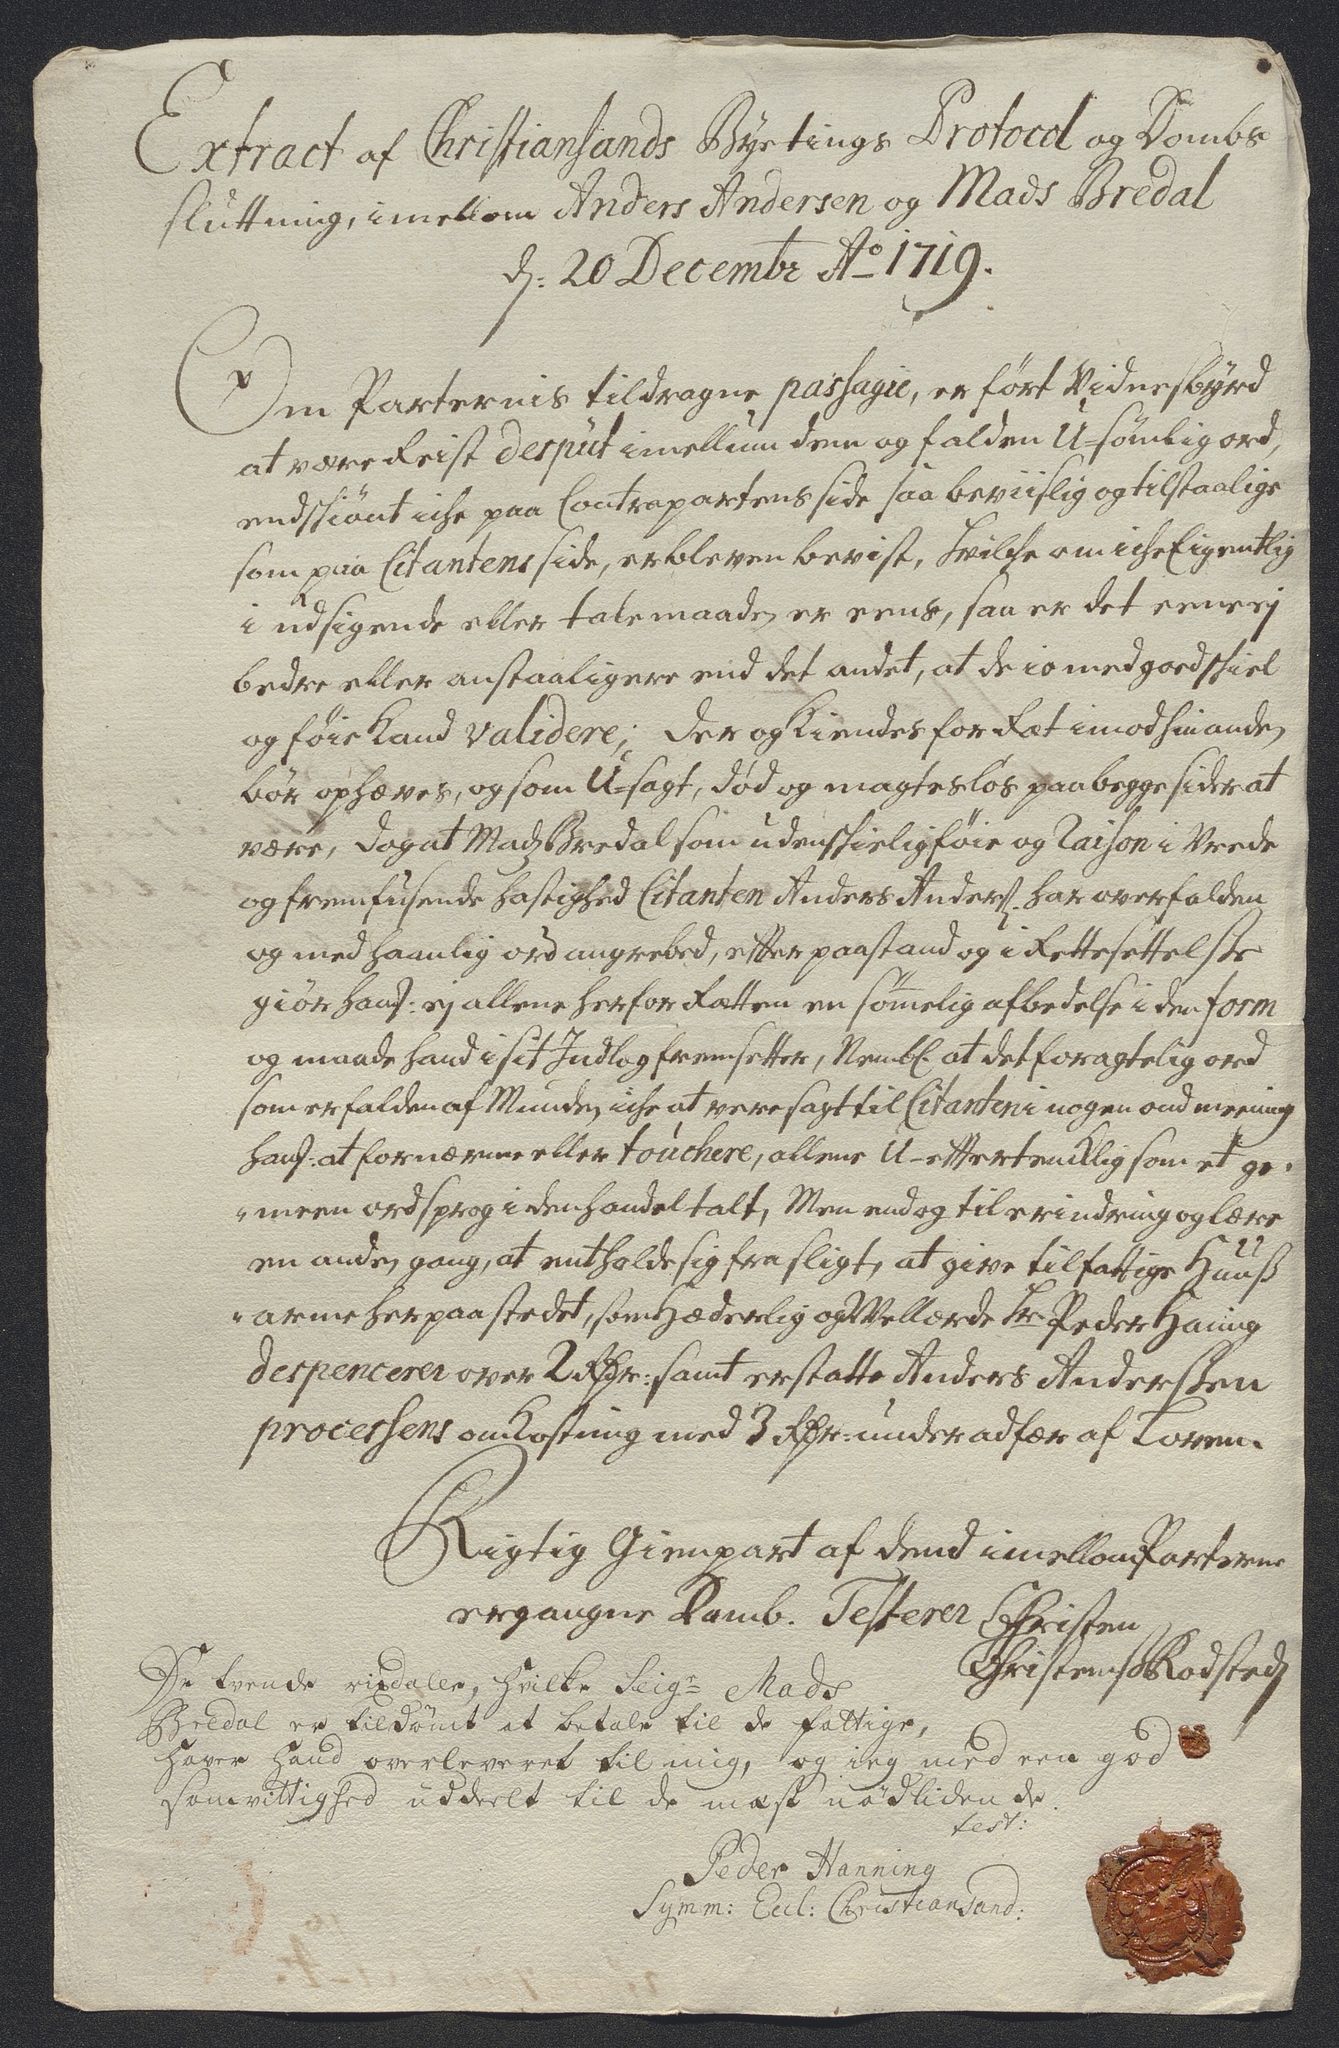 Extract af Christiansands Byetings Protocol og Dombs
sluttning, imellom Anders Andersen og Mads Bredal
d: 20 Decembr Ao 1719.
Om Parternis tildragne passagie, er ført Vidnesbyrd
at være Reist desput imellum dem og falden U-sømlig ord,
endskiønt iche paa Contrapartens side saa beviislig og tilstaalige
som paa Citantens side, er bleven bevist, hvilche om iche Eigentlig
i udsigende eller talemaaden er eens, saa er det eene ej
bedre eller anstaaligere end det andet, at de io med goed skiel
og føie kand validere; Der og kiendes for Ræt imod hinanden
bør ophæves, og som U-sagt, død og magtesløs paa begge sider at
være, Dog at Mads Bredal som uden skielig føie og Raison i Vrede
og fremfusende hastighed Citanten Anders Anders: har overfalden
og med haanlig ord angrebed, etter paastand og i Rettesettelse
giør hans: ej allene her for Rætten en sømmelig afbedelse i den form
og maade hand i sit Indlog fremsetter, Nembl. at det foragtelig ord
som er falden af Munden iche at vere sagt til Citanten i nogen ond meening
hans: at fornærme eller touchere, allene U-ettertencklig som et ge-
-meen ordsprog i den handel talt, Men end og til erindring og lære
en anden gang, at entholde sig fra sligt, at give til fattige Huuß
-arme her paa stedet, som Hæderlig og Wellærde Hr Peder Haning
despencerer over 2 Rdr: samt erstatte Anders Anderssen
processens omkostning med 3 Rdr: under adfær af Loven.
Rigtig Gienpart af dend imellom Parterne
ergangne Domb. Testerer Christen
Christens: Rodsted
De tvende rixdaler, hvilke Seigr Mads
Bredal er tildømt at betale til de fattige,
haver hand overleveret til mig, og ieg med een god
samvittighed uddeelt til de mæst nødlidende.
test:
Peder Hanning
Symm: Eccl: Christiansand: